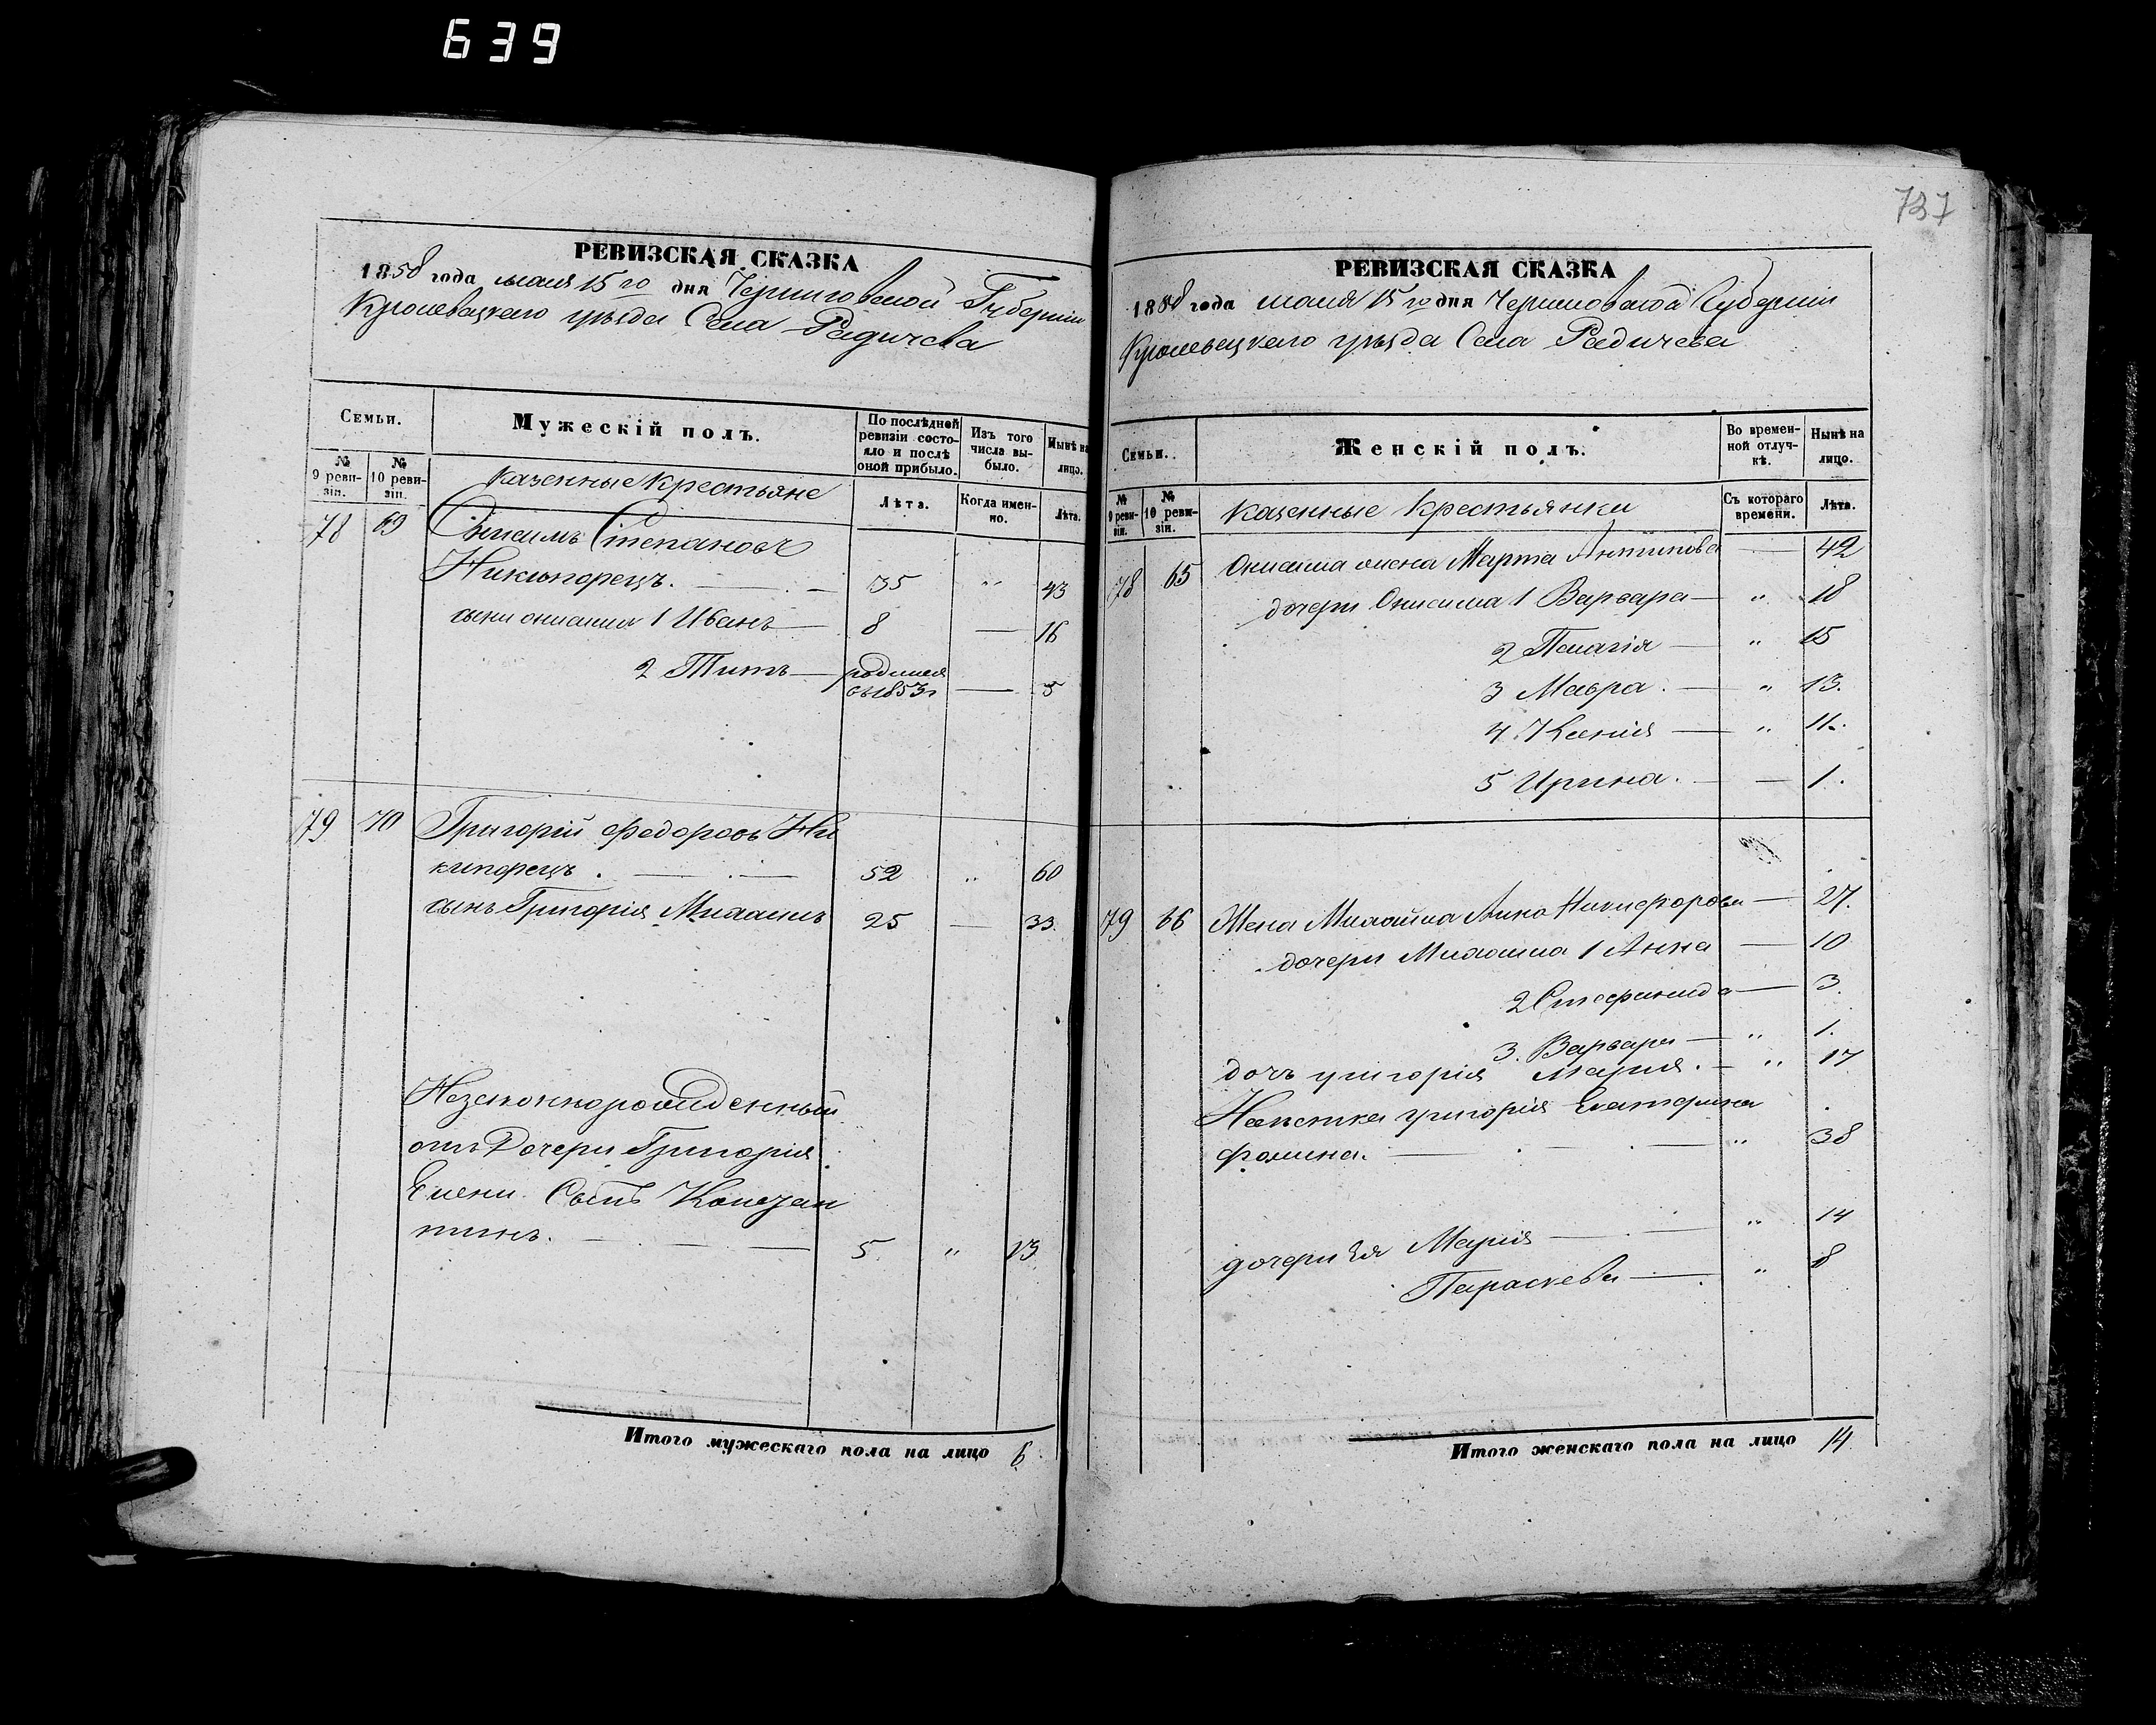 639
737
РЕВИЗСКАЯ СКАЗКА
1858 года мая 15 го дня Черниговской Губернии
Кролевецкаго уѣзда Села Радичева
Семьи.
Мужескій полъ.
По послѣдней ревизіи состояло и послѣ оной прибыло.
Изъ того числа выбыло.
Нынѣ на лицо.
№ 9 ревизіи.
№ 10 ревизіи.
казенные крестьяне
Лѣта.
Когда именно.
Лѣта.
78 69 Онисимъ Степановъ
Никипорецъ. — 35 " 43
сыни онисима 1 Иванъ — 8 — 16
2 Титъ — родился
въ 1853г — 5
79 70 Григорій Федоровъ Ни
кипорецъ. — 52 " 60
сынъ Григорія 25 — 33
Незаконнорожденный
отъ Дочери Григорія
Елени Сынъ Констан
тинъ. — 5 " 13
Итого мужескаго пола на лицо 6
РЕВИЗСКАЯ СКАЗКА
1858 года мая 15 го дня Черниговской Губерніи
Кролевецкаго уѣзда Села Радичева
Семьи.
Женскій полъ.
Во временной отлучкѣ.
Нынѣ на лицо.
№ 9 ревизіи.
№ 10 ревизіи.
казенные крестьянки
Съ котораго времени.
Лѣта.
78 65 Онисима жена Марта Антипова — 42
дочери Онисима 1 Варвара — " 18
2 Пелагія — " 15
3 Мавра. — " 13.
4 Ксенія — " 11.
5 Ирина. — — 1.
79 66 Жена Анна Никифорова — 27.
дочери 1 Анна — 10
2 — 3.
3. Варвара — " 1.
дочь григорія Марія. — " 17
Невѣстка григорія Екатерина
Фомина. — " 38
дочери Ея Марія — " 14
Параскева — " 8
Итого женскаго пола на лицо 14